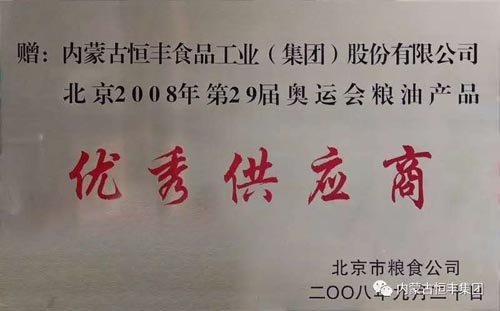 赠：内蒙古恒丰食品工业（集团）股份有限公司
北京2008年第29届奥运会粮油产品
优秀供应商
北京市粮食公司
二〇〇八年九月二十日
内蒙古恒丰集团